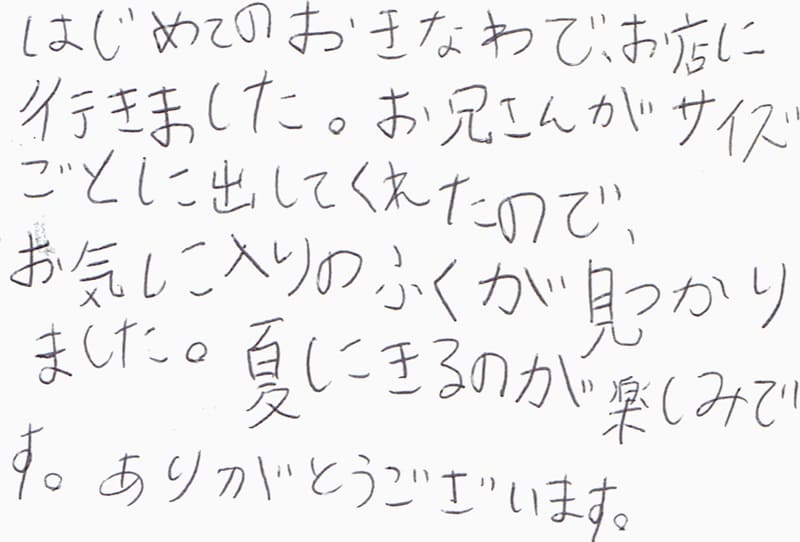 はじめてのおきなわで、お店に
行きました。お兄さんがサイズ
ごとに出してくれたので、
お気に入りのふくが見つかり
ました。夏にきるのが楽しみで
す。ありがとうございます。